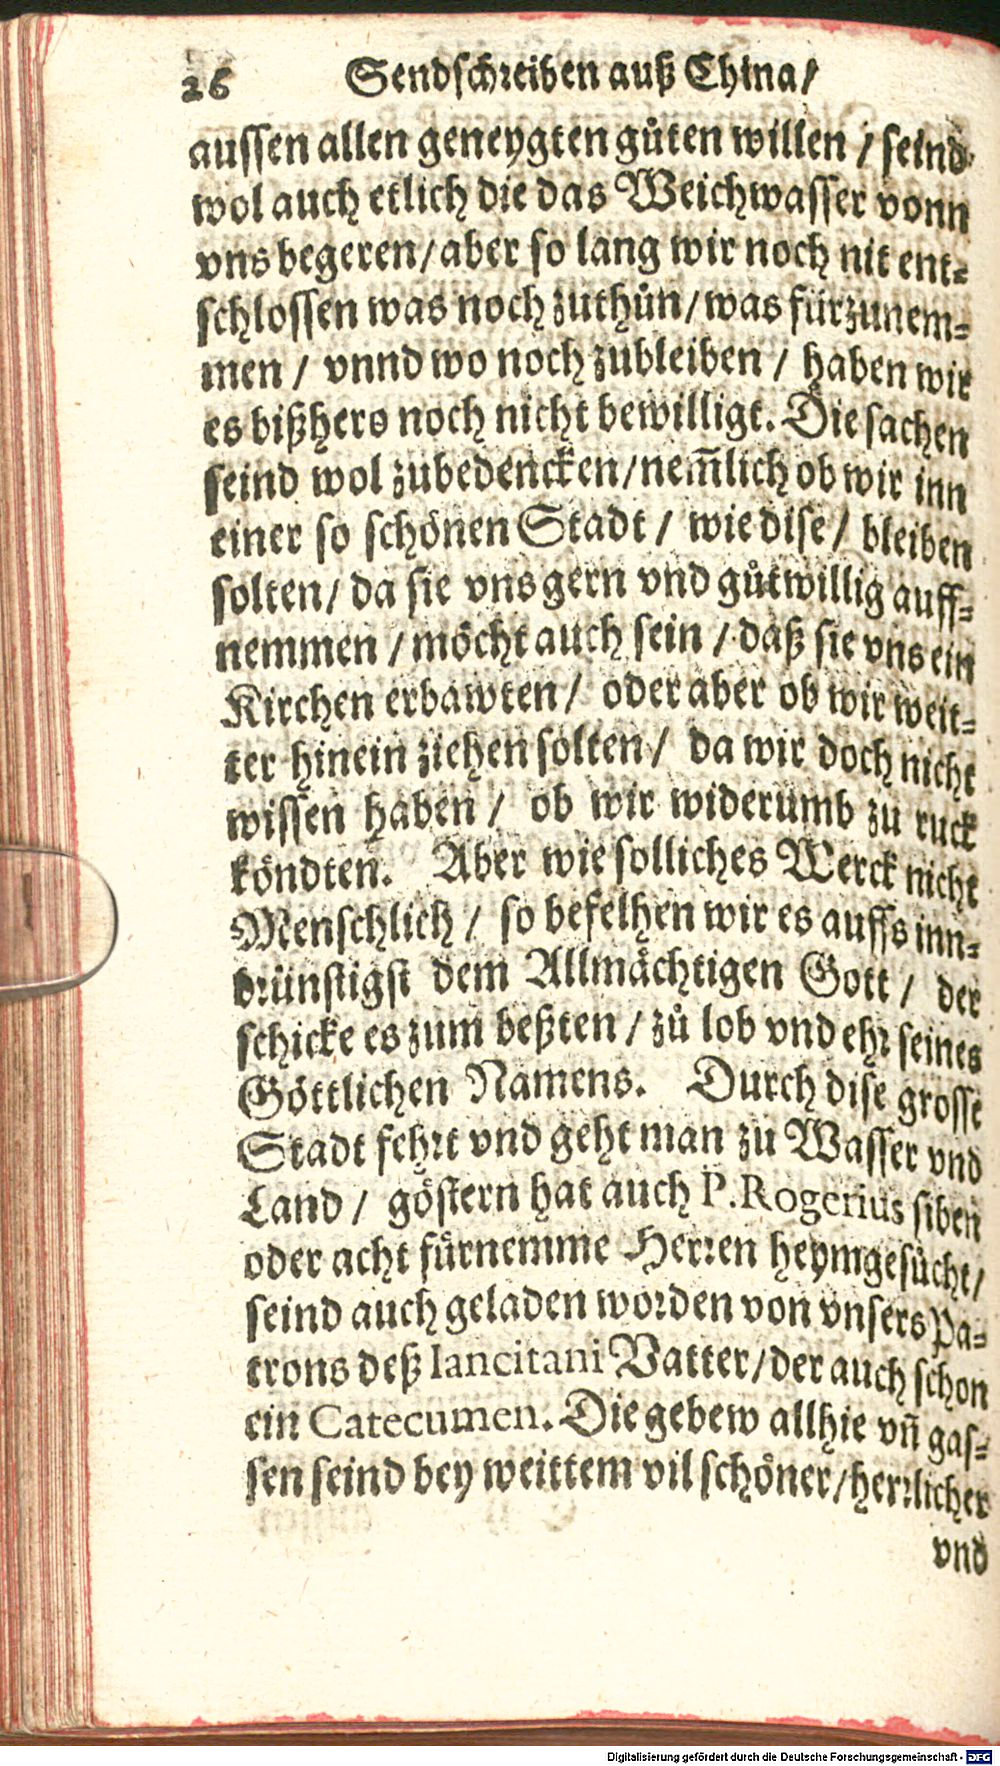 26 Sendschreiben auß China/
aussen allen geneygten gůten willen / seind
wol auch etlich die das Weichwasser vonn
vns begeren/aber so lang wir noch nit ent-
schlossen was noch zuthůn/was fürzunem-
men / vnnd wo noch zubleiben / haben wir
es bißhero noch nicht bewilligt. Die sachen
seind wol zubedencken/nem̃lich ob wir inn
einer so schönen Stadt / wie dise / bleiben
solten/ da sie vns gern vnd gůtwillig auff-
nemmen / möcht auch sein / daß sie vns ein
Kirchen erbawten/ oder aber ob wir weit-
ter hinein ziehen solten/ da wir doch nicht
wissen haben / ob wir widerumb zu ruck
köndten. Aber wie solliches Werck nicht
Menschlich / so befelhen wir es auffs inn-
brünstigst dem Allmächtigen Gott / der
schicke es zum beßten / zů lob vnd ehr seines
Göttlichen Namens. Durch dise grosse
Stadt fehrt vnd geht man zu Wasser vnd
Land / göstern hat auch P. Rogerius siben
oder acht fürnemme Herren heymgesůcht/
seind auch geladen worden von vnsers Pa-
trons deß Iancitani Vatter/der auch schon
ein Catecumen. Die gebew allhie vñ gas-
sen seind bey weittem vil schöner/herrlicher
vnd
Digitalisierung gefördert durch die Deutsche Forschungsgemeinschaft - DFG